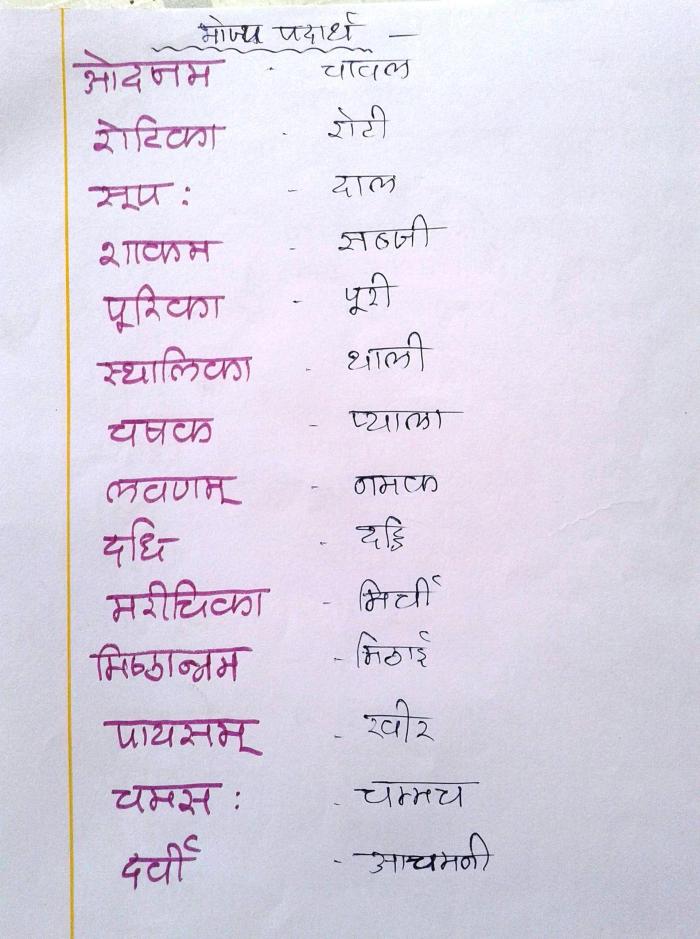 भोज्य पदार्थ -
ओदनम - चावल
रोटिका - रोटी
सूप : - दाल
शाकम - सब्जी
पूरिका - पूरी
स्थालिका - थाली
चषक - प्याला
लवणम् - नमक
दधि - दहि
मरीचिका - मिर्ची
मिष्ठान्नम - मिठाई
पायसम् - खीर
चमस : - चम्मच
दर्वी - आचमनी